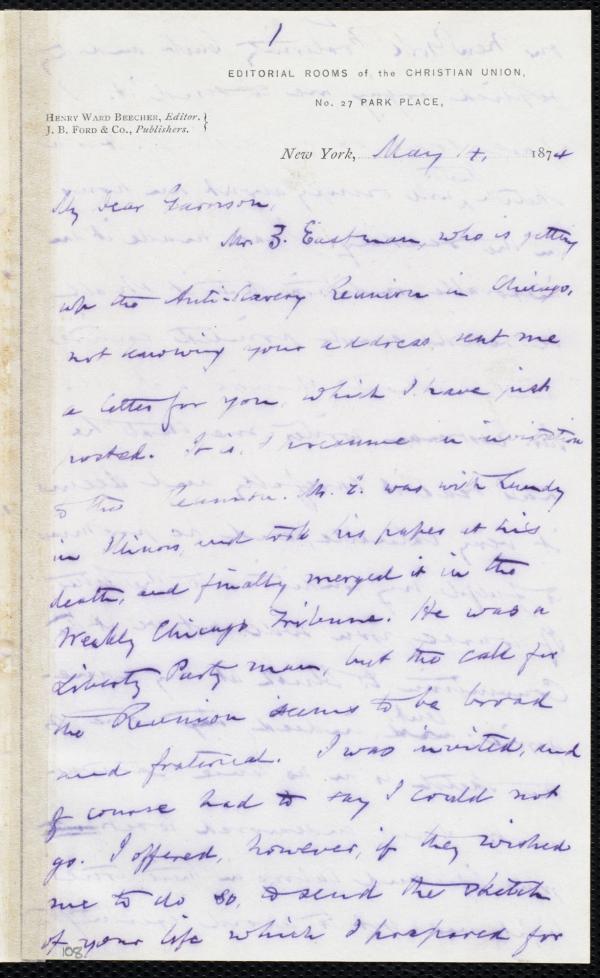 1
EDITORIAL ROOMS of the CHRISTIAN UNION,
No. 27 PARK PLACE,
HENRY WARD BEECHER, Editor.
J. B. FORD & Co., Publishers.
New York, May 4, 1874
My dear Garrison,
Mr. Z. Eastman, who is getting
up the Anti-Slavery Reunion in Chicago,
not knowing your address, sent me
a letter for you, which I have just
posted. It is, I presume, an invitation
to the Reunion. Mr. E. was with Lundy
in Illinois, and took his paper at his
death, and finally merged it in the
Weekly Chicago Tribune. He was a
Liberty Party man, but the call for
the Reunion seems to be broad
and fraternal. I was invited, and
of course had to say I could not
go. I offered, however, if they wished
me to do so, to send the sketch
of your life which I prepared for
108